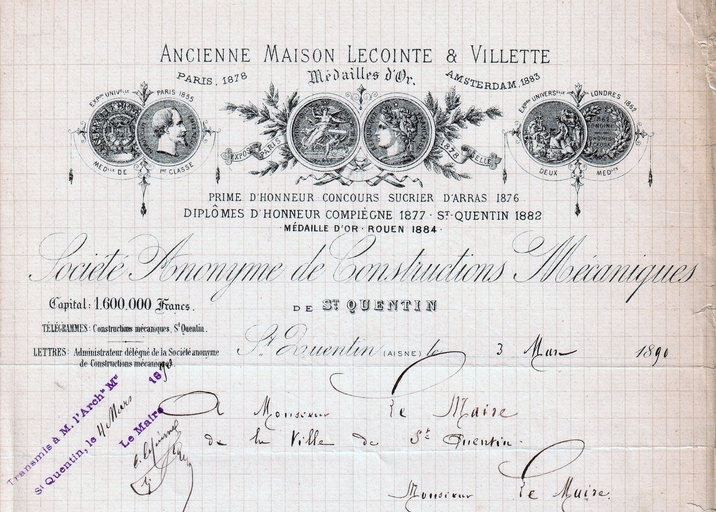 ANCIENNE MAISON LECOINTE & VILLETTE
PARIS, 1878 Médailles d'Or. AMSTERDAM, 1883
EXPON UNIVELLE PARIS 1855
MEDLLE DE 1RE CLASSE
EXPOS PARIS 1878
EXPON UNIVERSELLE LONDRES 1862
DEUX MEDLLES
PRIME D'HONNEUR CONCOURS SUCRIER D'ARRAS 1876
DIPLÔMES D'HONNEUR COMPIÈGNE 1877 · ST QUENTIN 1882
· MÉDAILLE D'OR · ROUEN 1884 ·
Société Anonyme de Constructions Mécaniques
DE ST QUENTIN
Capital: 1.600,000 Francs.
TÉLÉGRAMMES: Constructions mécaniques, St Quentin.
LETTRES: Administrateur délégué de la Société anonyme
de Constructions mécaniques
St Quentin (AISNE) le 3 Mars 1890
Transmis à M. l'Archte Mal
St Quentin, le 4 Mars 1890
Le Maire
A Monsieur Le Maire
de la Ville de St Quentin.
Monsieur Le Maire.